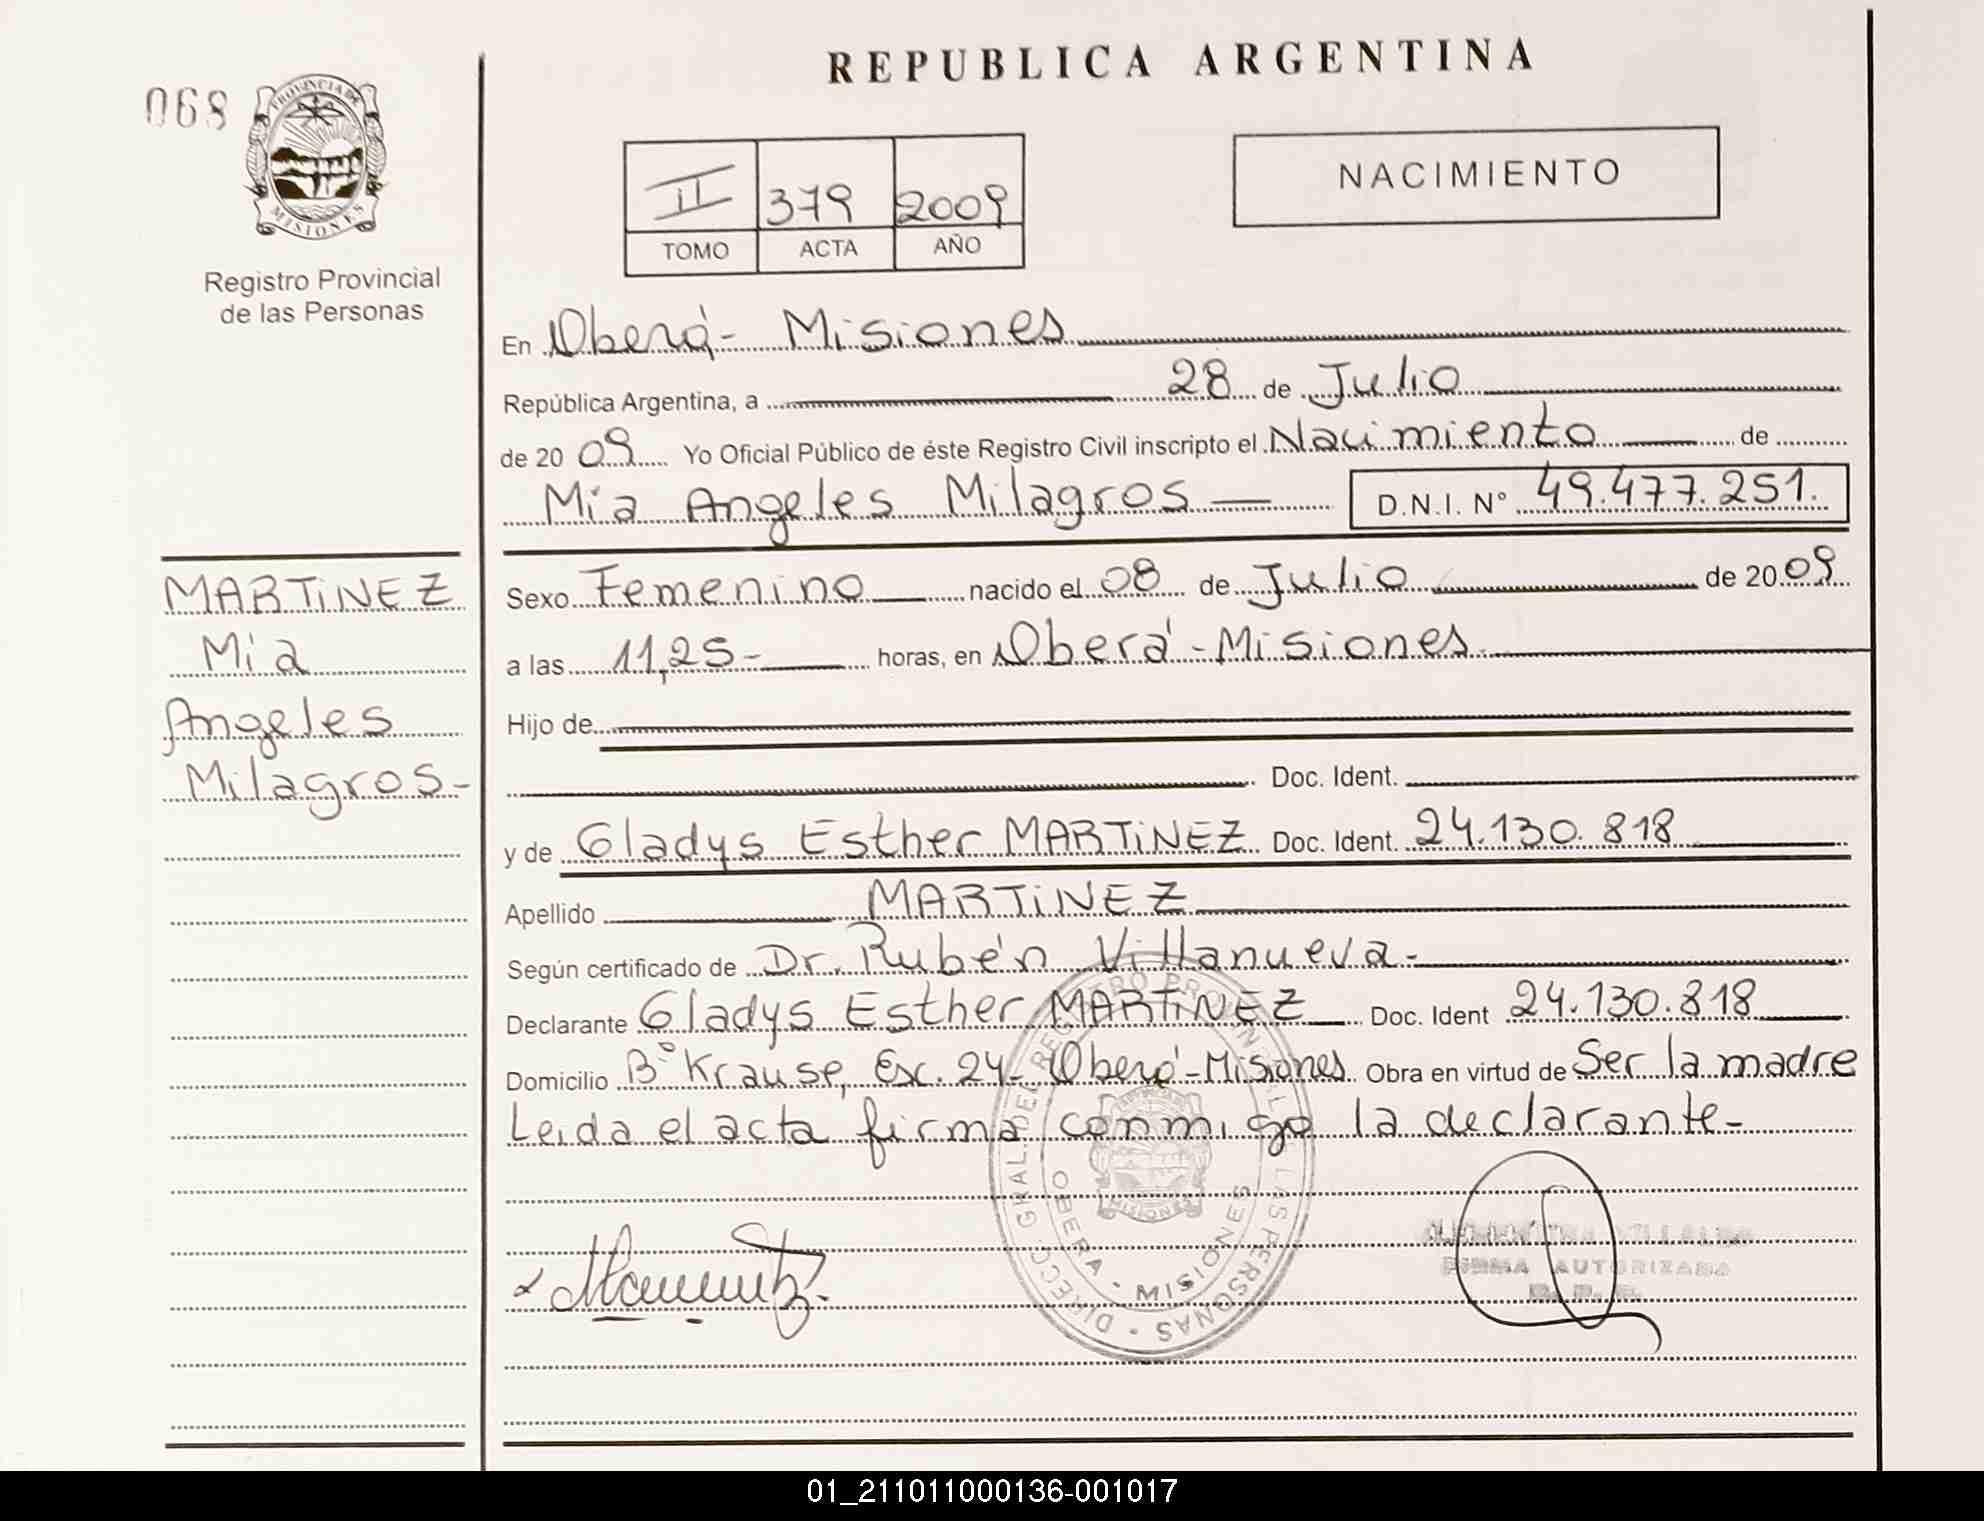 REPUBLICA ARGENTINA
068
PROVINCIA DE
MISIONES
Registro Provincial
de las Personas
II 379 2009
TOMO ACTA AÑO
NACIMIENTO
En Oberá- Misiones
República Argentina, a 28 de Julio
de 20 09 Yo Oficial Público de éste Registro Civil inscripto el Nacimiento de
Mía Angeles Milagros — D.N.I. N° 49.477.251.
MARTiNEZ
Mía
Angeles
Milagros-
Sexo Femenino nacido el 08 de Julio de 20 09
a las 11,25- horas, en Oberá-Misiones.
Hijo de
Doc. Ident.
y de Gladys Esther MARTiNEZ Doc. Ident. 24.130.818
Apellido MARTiNEZ
Según certificado de Dr. Rubén Villanueva-
Declarante Gladys Esther MARTiNEZ Doc. Ident 24.130.818
Domicilio B° Krause, Ex. 24- Oberá-Misiones Obra en virtud de Ser la madre
Leida el acta firma conmigo la declarante-
DIRECC. GRAL. DEL REGISTRO PROVINCIAL DE LAS PERSONAS
OBERA - MISIONES
MISIONES
FIRMA AUTORIZADA
01_211011000136-001017